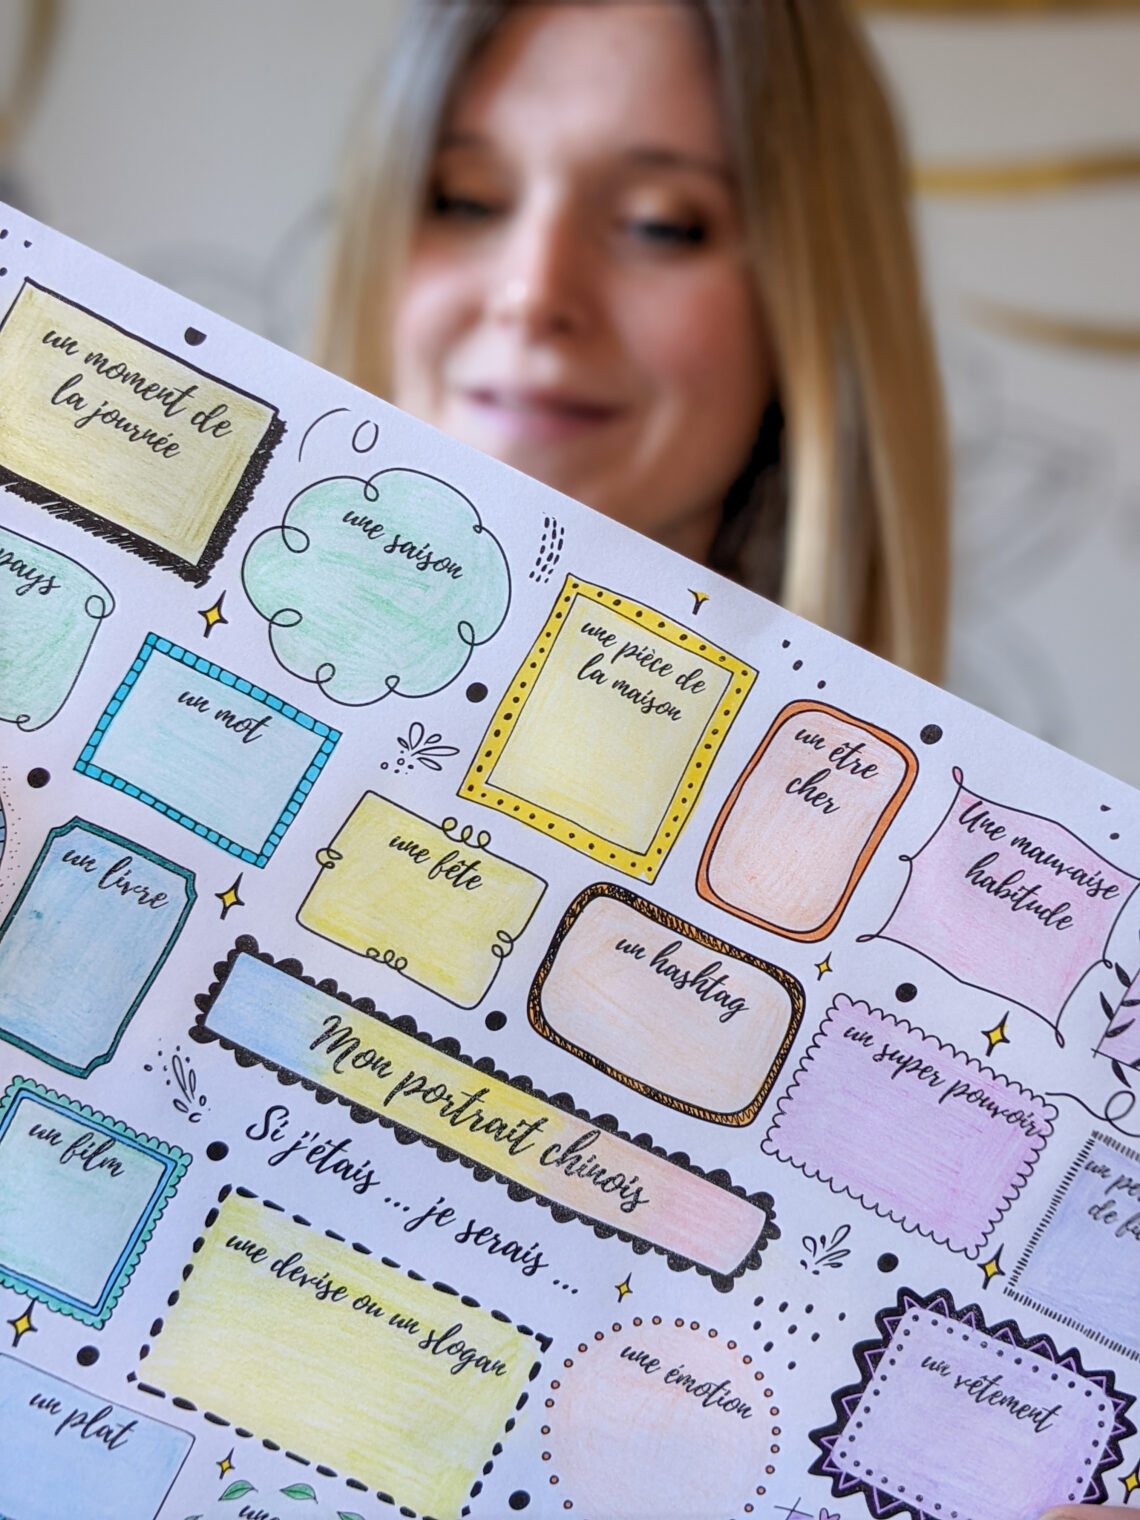 un moment de
la journée
une saison
pays
un mot
une pièce de
la maison
un être
cher
Une mauvaise
habitude
un livre
une fête
un hashtag
un super pouvoir
Mon portrait chinois
Si j'étais ... je serais ...
un film
une devise ou un slogan
une émotion
un vêtement
un plat